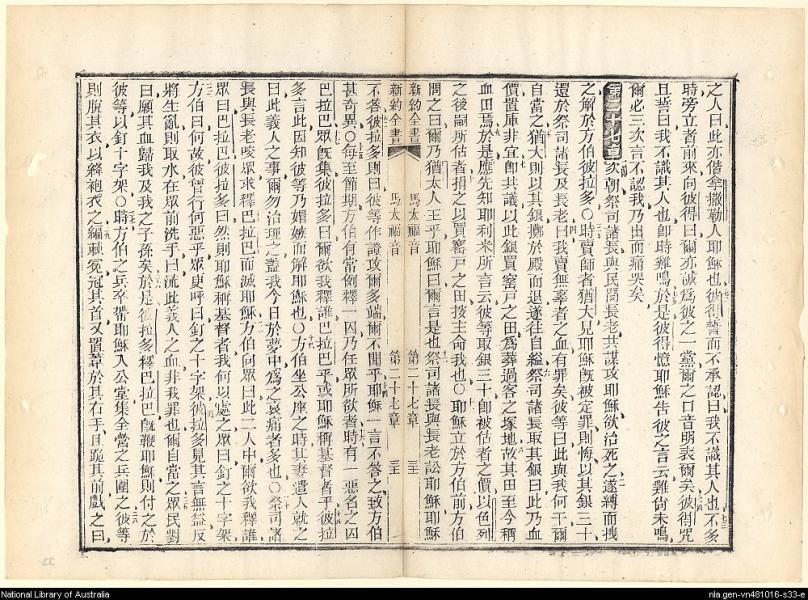 之人曰此亦偕拿撒勒人耶穌也彼得誓而不承認曰我不識其人也不多
時旁立者前來向彼得曰爾亦誠為彼之一黨爾之口音明表爾矣彼得咒
且誓曰我不識其人也卽時雞鳴於是彼得憶耶穌告彼之言云雞尙未鳴
爾必三次言不認我乃出而痛哭矣
第二十七章 次朝祭司諸長與民間長老共謀攻耶穌欲治死之遂縛而拽
之解於方伯彼拉多〇時賣師者猶大見耶穌旣被定罪則悔以其銀三十
還於祭司諸長及長老曰我賣無辜者之血有罪矣彼等曰此與我何干爾
自當之猶大則以其銀擲於殿而退遂往自縊祭司諸長取其銀曰此乃血
價置庫非宜卽共議以此銀買窰戶之田爲葬過客之塚地故其田至今稱
血田焉於是應先知耶利米所言云彼等取銀三十卽被估者之價以色列
之後嗣所估者捐之以買窰戶之田按主命我也〇耶穌立於方伯前方伯
問之曰爾乃猶太人王乎耶穌曰爾言是也祭司諸長與長老訟耶穌耶穌
新約全書 馬太福音 第二十七章 三十
新約全書 馬太福音 第二十七章 三十
不答彼拉多則曰彼等作證攻爾多端爾不聞乎耶穌一言不答之致方伯
甚奇異〇每至節期方伯有常例釋一囚乃任眾所欲者時有一惡名之囚
巴拉巴眾旣集彼拉多曰爾欲我釋誰巴拉巴乎或耶穌稱基督者乎彼拉
多言此因知彼等乃媢嫉而解耶穌也〇方伯坐公座之時其妻遣人就之
曰此義人之事爾勿治理之蓋我今日於夢中爲之哀痛者多也〇祭司諸
長與長老唆眾求釋巴拉巴而滅耶穌方伯向眾曰此二人中爾欲我釋誰
眾曰巴拉巴彼拉多曰然則耶穌稱基督者我何以處之眾曰釘之十字架
方伯曰何故彼曾行何惡乎眾更呼曰釘之十字架彼拉多見其言無益反
將生亂則取水在眾前洗手曰流此義人之血非我罪也爾自當之眾民對
曰願其血歸我及我之子孫矣於是彼拉多釋巴拉巴旣鞭耶穌則付之於
彼等以釘十字架〇時方伯之兵卒帶耶穌入公堂集全營之兵圍之彼等
則脫其衣以絳袍衣之編棘冕冠其首又置葦於其右手且跪其前戲之曰
National Library of Australia
nla.gen-vn481016-s33-e